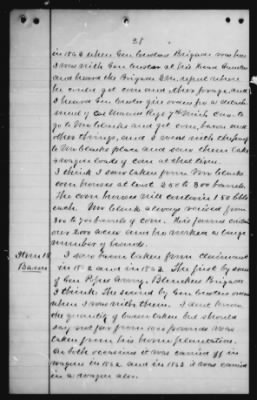 28
in 1863 when Gen Custers Brigade was here
I was with Gen Custer at his Head Quarters
and heard the Brigade Q.M. report where
he could get corn and other forage, and
I heard Gen Custer give orders for a detach-
ment of Cal 7th Mich Cav. to
go to Mr and get corn, bacon and
other things, and I went with the
to Mr place and saw them take
wagon loads of corn at that time.
I think I saw taken from Mr
corn houses at least 250 to 300 barrels.
The corn houses still contains 150 bbls
each. Mr always raised from
to 700 barrels of corn. His farm contains
over 200 acres and he worked a large
number of hands.
Item 18 I saw bacon taken from claimant
Bacon in 1862 and in 1863. The first by some
of Gen Popes Army, Brigade
I think. The second by Gen Custers
when I was with them. I dont know
the quantity of bacon taken but should
say not far from 1000 pounds was
taken from his home plantation.
On both occasions it was carried off in
wagons in 1862 and in 1863 it was carried
in a wagon also.